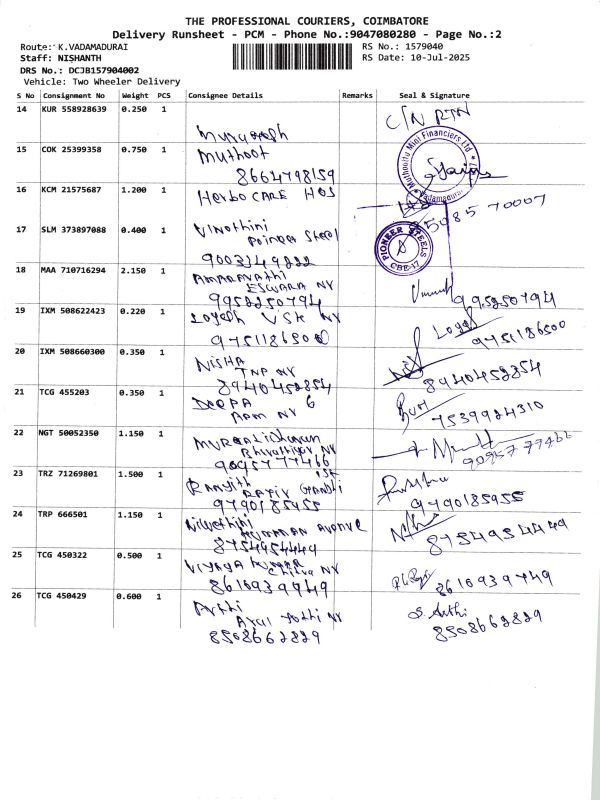 THE PROFESSIONAL COURIERS, COIMBATORE
Delivery Runsheet - PCM - Phone No.:9047080280 - Page No.:2
Route: K.VADAMADURAI
RS No.: 1579040
Staff: NISHANTH
RS Date: 10-Jul-2025
DRS No.: DCJB157904002
Vehicle: Two Wheeler Delivery
S No Consignment No Weight PCS Consignee Details Remarks Seal & Signature
14 KUR 558928639 0.250 1
C/N RTN
Murugesh
15 COK 25399358 0.750 1 Muthoot
8664798159
Muthoottu Mini Financiers Ltd
Vadamadurai
16 KCM 21575687 1.200 1 Herbo CARE HOS
85085 70007
17 SLM 373897088 0.400 1 Vinothini
Poineer Steel
9003149222
PIONEER STEELS
CBE-17
18 MAA 710716294 2.150 1 Amaravathi
ESWARA NY
9952250794
995250794
19 IXM 508622423 0.220 1 Logesh VSK NY
9751186500
Loges
9751186500
20 IXM 508660300 0.350 1 NISHA
TNP NY
8940452854
8940452354
21 TCG 455203 0.350 1 DEEPA 6
ARM NY
7539924310
22 NGT 50052350 1.150 1
NY
9095777466
9095779466
23 TRZ 71269801 1.500 1 Ranjith
RAJIV Gandhi
9790185955
9790185955
24 TRP 666501 1.150 1
Avenue
8754954449
8754954449
25 TCG 450322 0.500 1 Vijaya Kumar
Chitra NY
8610939749
8610939749
26 TCG 450429 0.600 1 Arthi
Jothi NY
8508662829
S. Arthi
8508662829